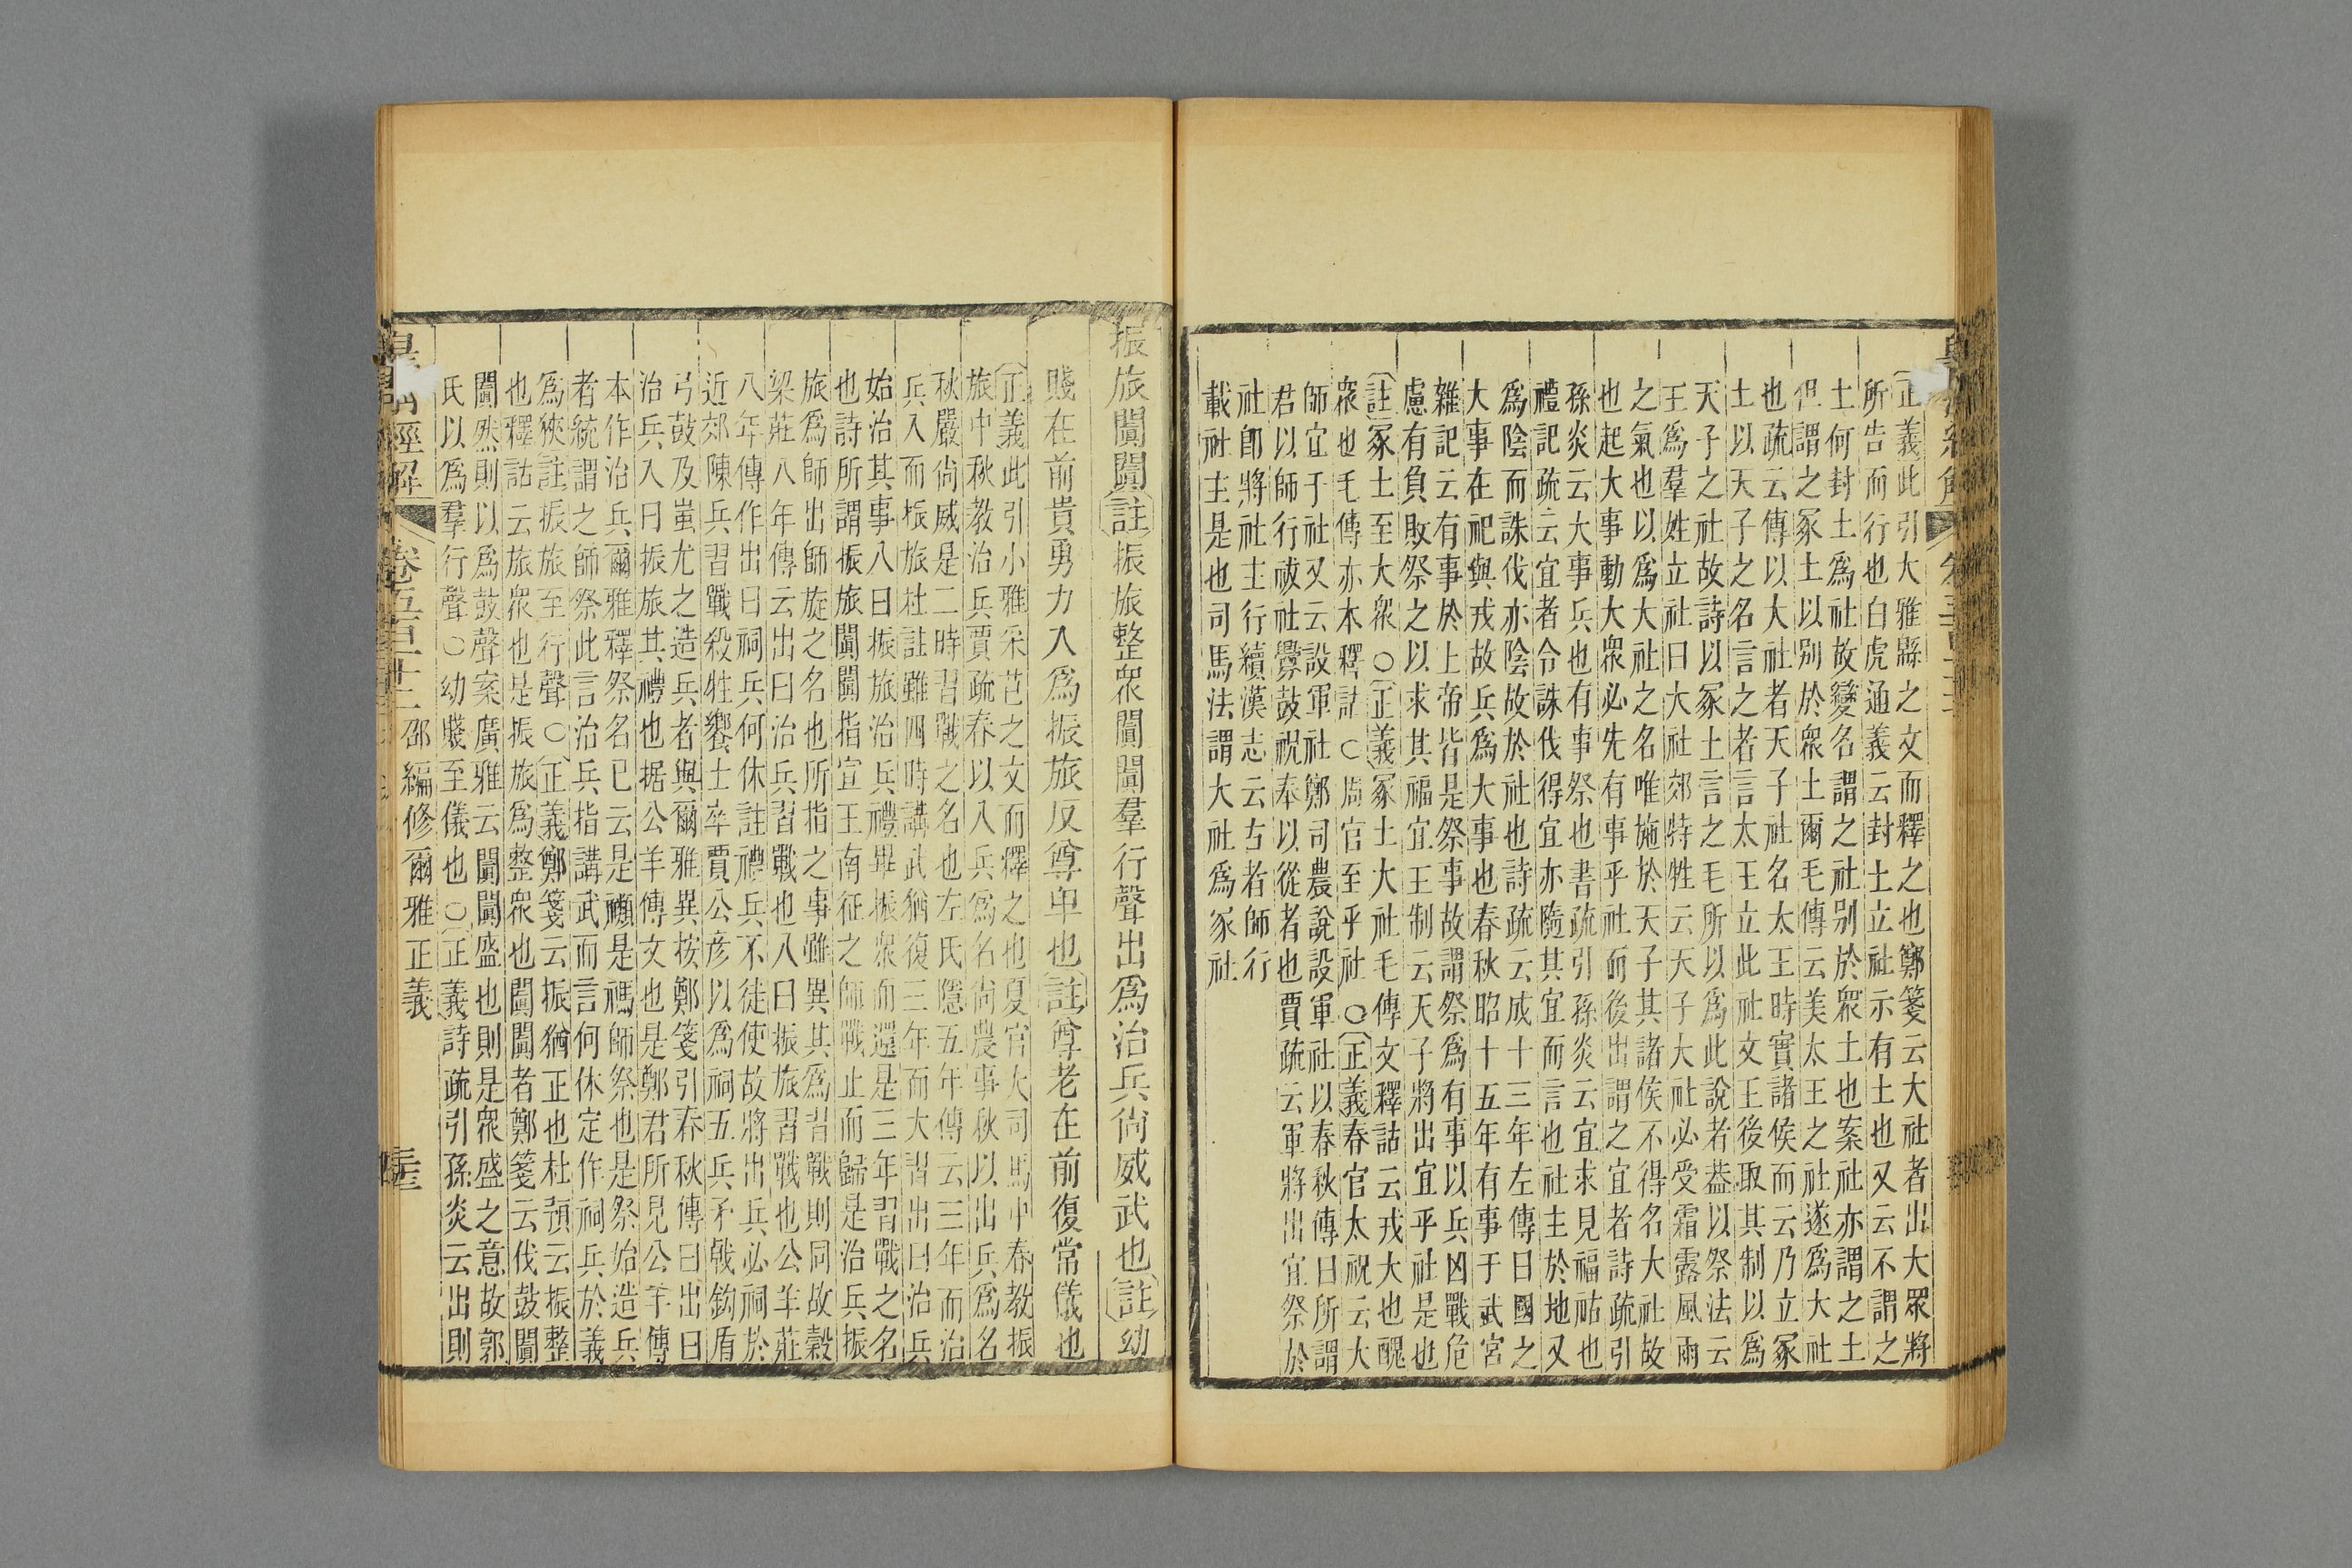 正義此引大雅緜之文而釋之也鄭箋云大社者出大眾將
所告而行也白虎通義云封土立社示有土也又云不謂之
土何封土為社故變名謂之社別於眾土也案社亦謂之土
但謂之冢土以別於眾土爾毛傳云美太王之社遂為大社
也疏云傳以大社者天子社名太王時實諸侯而云乃立冢
土以天子之名言之者言太王立此社文王後取其制以為
天子之社故詩以冢土言之毛所以為此說者葢以祭法云
王為羣姓立社曰大社郊特牲云天子大社必受霜露風雨
之氣也以為大社之名唯施於天子其諸侯不得名大社故
也起大事動大眾必先有事乎社而後出謂之宜宜者詩疏引
孫炎云大事兵也有事祭也書疏引孫炎云宜求見福祜也
禮記疏云宜者令誅伐得宜亦隨其宜而言也社主於地又
為陰而誅伐亦陰故於社也詩疏云成十三年左傳曰國之
大事在祀與戎故兵為大事也春秋昭十五年有事于武宮
雜記云有事於上帝皆是祭事故謂祭為有事以兵凶戰危
慮有負敗祭之以求其福宜王制云天子將出宜乎社是也
註冢土至大眾○正義冢土大社毛傳文釋詁云戎大也醜
眾也毛傳亦本釋詁○周官至乎社○正義春官太祝云大
師宜于社又云設軍社鄭司農說設軍社以春秋傳曰所謂
君以師行祓社釁鼓祝奉以從者也賈疏云軍將出宜祭於
社卽將社主行續漢志云古者師行
載社主是也司馬法謂大社為冢社
振旅闐闐註振旅整眾闐闐羣行聲出為治兵尚威武也註幼
賤在前貴勇力入為振旅反尊卑也註尊老在前復常儀也
正義此引小雅采芑之文而釋之也夏官大司馬中春教振
旅中秋教治兵賈疏春以入兵為名尚農事秋以出兵為名
秋嚴尚威是二時習戰之名也左氏隱五年傳云三年而治
兵入而振旅杜註雖四時講武猶復三年而大習出曰治兵
始治其事入曰振旅治兵禮畢振眾而還是三年習戰之名
也詩所謂振旅闐闐指宣王南征之師戰止而歸是治兵振
旅為師出師旋之名也所指之事雖異其為習戰則同故穀
梁莊八年傳云出曰治兵習戰也入曰振旅習戰也公羊莊
八年傳作出曰祠兵何休註禮兵不徒使故將出兵必祠於
近郊陳兵習戰殺牲饗士卒賈公彥以為祠五兵矛戟鉤盾
弓鼓及蚩尤之造兵者與爾雅異按鄭箋引春秋傳曰出曰
治兵入曰振旅其禮一也據公羊傳文也是鄭君所見公羊傳
本作治兵爾雅釋祭名已云是禷是禡師祭也是祭始造兵
者統謂之師祭此言治兵指講武而言何休定作祠兵於義
為狹註振旅至行聲○正義鄭箋云振猶正也杜預云振整
也釋詁云旅眾也是振旅為整眾也闐闐者鄭箋云伐鼓闐
闐然則以為鼓聲案廣雅云闐闐盛也則是眾盛之意故郭
氏以為羣行聲○幼賤至儀也○正義詩疏引孫炎云出則
皇清經解 卷五百十二 邵編修爾雅正義